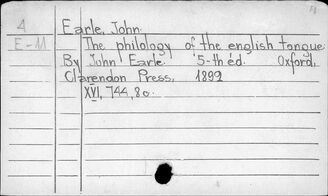 4 Earle, John.
E-11 The philology of the english tongue.
By John Earle. 5-th éd. Oxford,
Clarendon Press, 1892
XVI, 744, 8o.